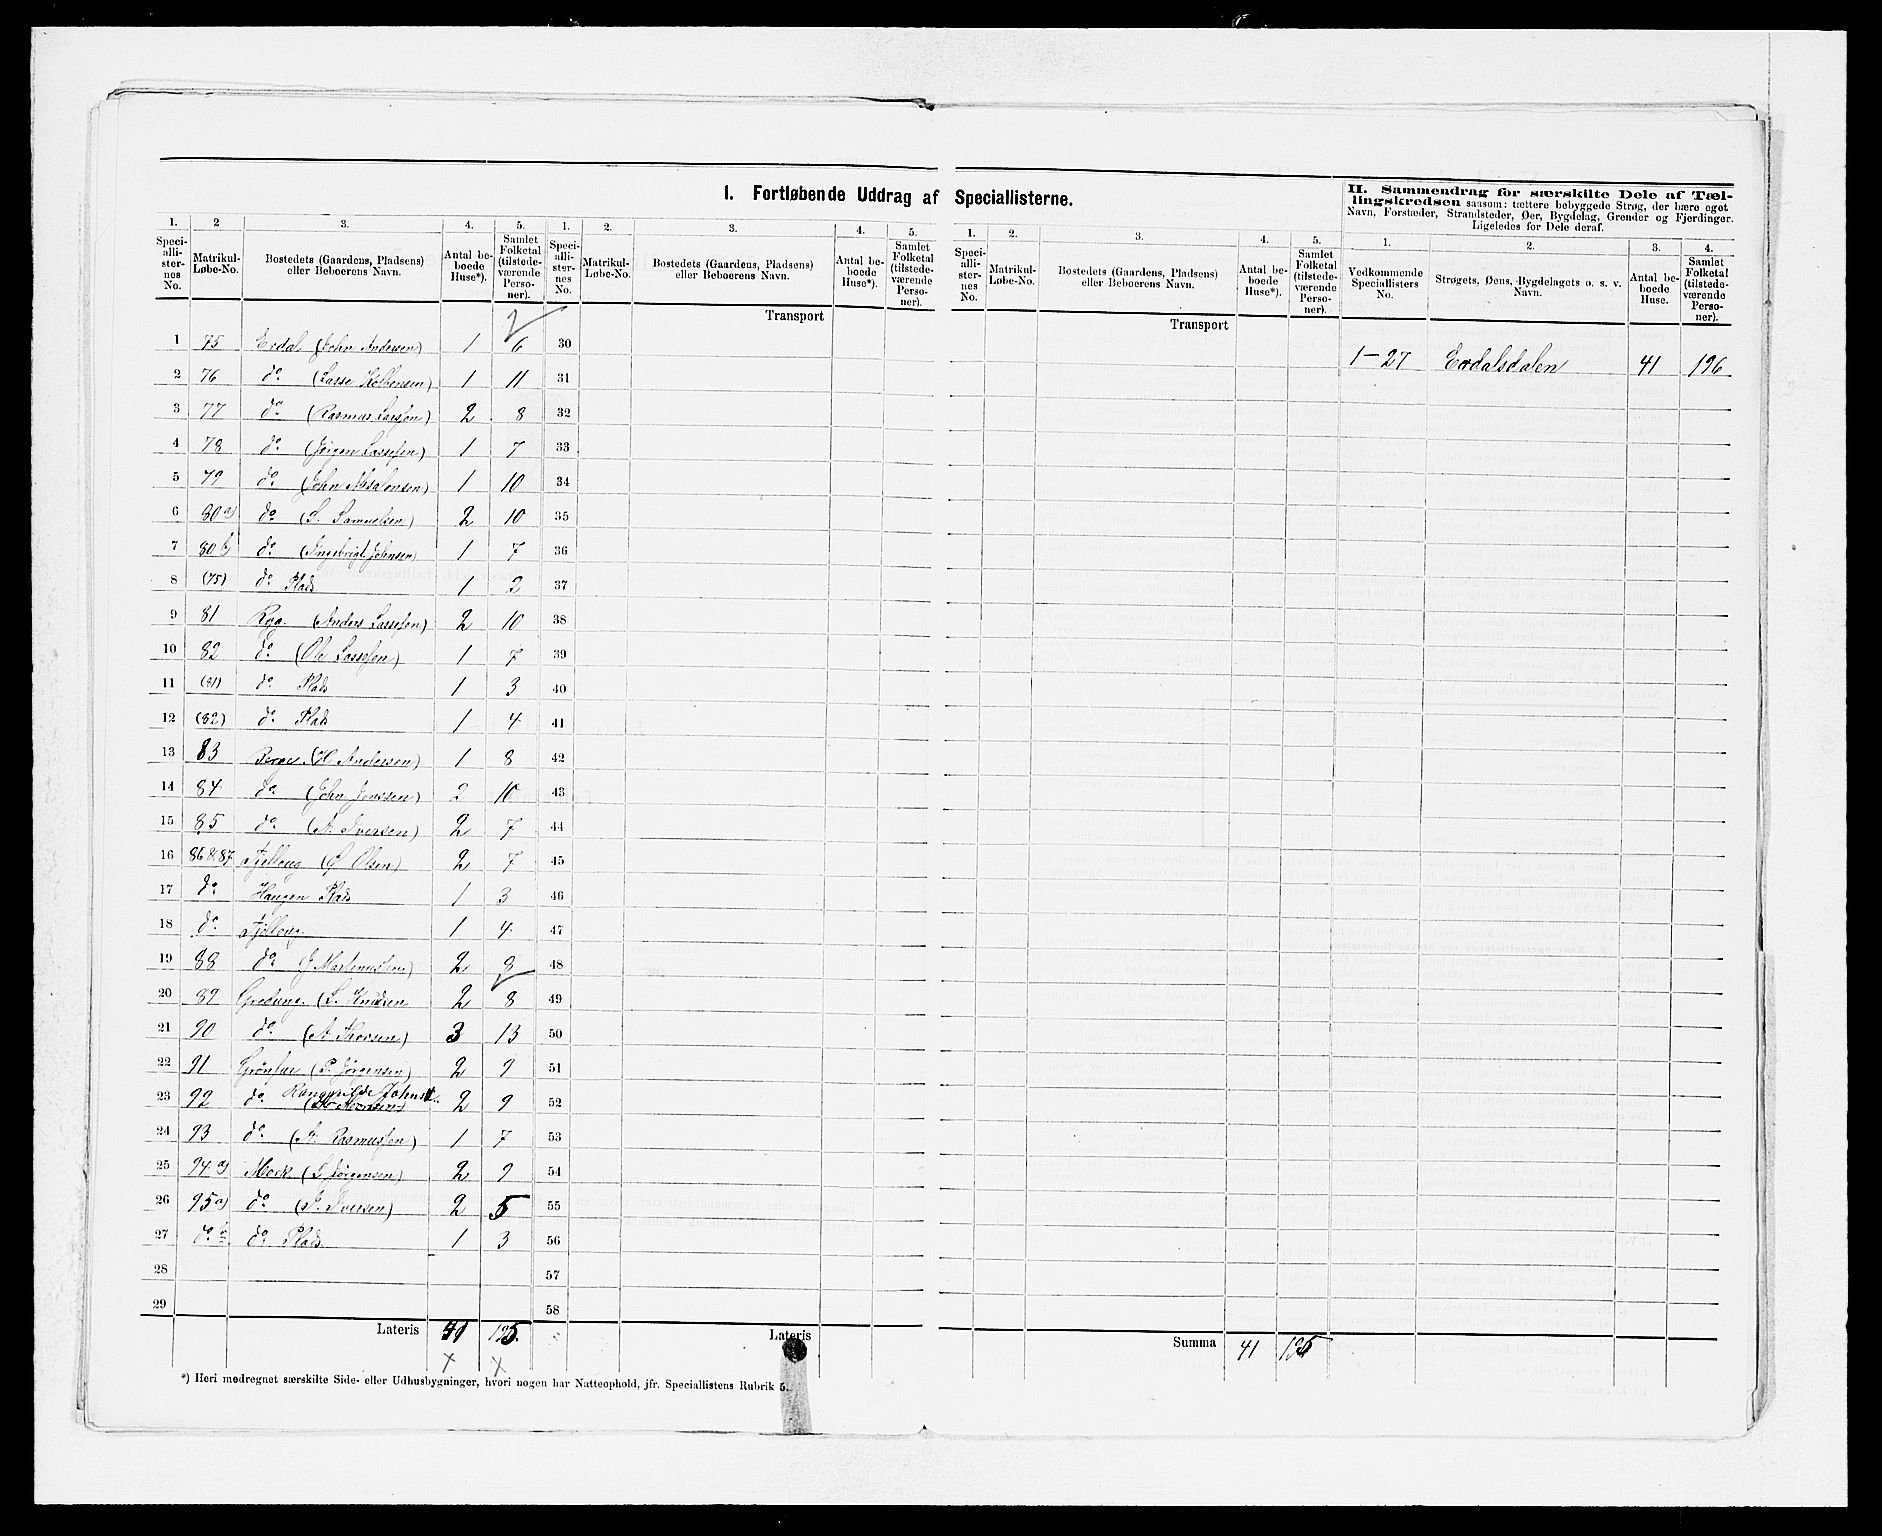 I. Fortløbende Uddrag af Speciallisterne.
II. Sammendrag for særskilte Dele af Tæl-
lingskredsen saasom: tættere bebyggede Strøg, der bære eget
Navn, Forstæder, Strandsteder, Øer, Bygdelag, Grender og Fjerdinger.
Ligeledes for Dele deraf.
1. 2 3. 4. 5. 1. 2. 3. 4. 5. 1. 2. 3. 4. 5. 1. 2. 3. 4.
Speci-alli-ster-nes No. Matrikul-Løbe-No. Bostedets (Gaardens, Pladsens) eller Beboerens Navn. Antal be-boede Huse*). Samlet Folketal (tilstede-værende Perso-ner).
Speci-alli-ster-nes No. Matrikul-Løbe-No. Bostedets (Gaardens, Pladsens) eller Beboerens Navn. Antal be-boede Huse*). Samlet Folketal (tilstede-værende Perso-ner).
Speci-alli-ster-nes No. Matrikul-Løbe-No. Bostedets (Gaardens, Pladsens) eller Beboerens Navn. Antal be-boede Huse*). Samlet Folketal (tilstede-værende Perso-ner).
Vedkommende Speciallisters No. Strøgets, Øens, Bygdelagets o. s. v. Navn. Antal be-boede Huse. Samlet Folketal (tilstede-værende Perso-ner).
Transport Transport
1 75 Erdal (John Andersen) 1 6 30
1-27 Erdalsdalen 41 196
2 76 do (Lasse Kolbensen) 1 11 31
3 77 do (Rasmus Larssen) 2 8 32
4 78 do (Jørgen Lassesen) 1 7 33
5 79 do (John Absalonsen) 1 10 34
6 80 a) do (S. Samuelsen) 2 10 35
7 80 b) do (Ingebrigt Johnsen) 1 7 36
8 (75) do Plads 1 2 37
9 81 Ryg. (Anders Lassesen) 2 10 38
10 82 do (Ole Lassesen) 1 7 39
11 (81) do Plads 1 3 40
12 (82) do Plads 1 4 41
13 83 Berge (H Andersen) 1 8 42
14 84 do (John Jenssen) 2 10 43
15 85 do (A. Iversen) 2 7 44
16 86 & 87 (Ø Olsen) 2 7 45
17 do Haugen Plads 1 3 46
18 do 1 4 47
19 88 do (J Martinussen) 2 8 48
20 89 Gredung (S. Knudsen 2 8 49
21 90 do (A. Thorsen) 3 13 50
22 91 (P. Jørgensen) 2 9 51
23 92 do Rangvilde 2 9 52
24 93 do (A. Rasmussen) 1 7 53
25 94 a) Mork (S Jørgensen) 2 9 54
26 95 a) do (P. Iversen) 2 5 55
27 do do Plads 1 3 56
28 57
29 58
Lateris 41 195 Lateris Summa 41 195
*) Heri medregnet særskilte Side- eller Udhusbygninger, hvori nogen har Natteophold, jfr. Speciallistens Rubrik 5.